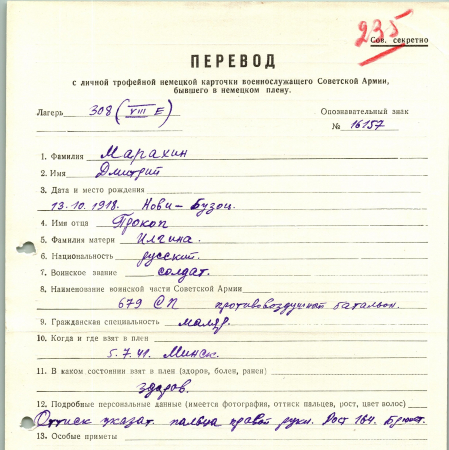 235
Сов. секретно
ПЕРЕВОД
с личной трофейной немецкой карточки военнослужащего Советской Армии,
бывшего в немецком плену.
Лагерь 308 (VIII E) Опознавательный знак
№ 16157
1. Фамилия Марахин
2. Имя Дмитрий
3. Дата и место рождения
13.10.1918. Нови-Бузоц.
4. Имя отца Прокоп
5. Фамилия матери Илгина.
6. Национальность русский.
7. Воинское звание солдат.
8. Наименование воинской части Советской Армии
679 СП противовоздушный батальон.
9. Гражданская специальность маляр.
10. Когда и где взят в плен
5.7.41. Минск.
11. В каком состоянии взят в плен (здоров, болен, ранен)
здоров.
12. Подробные персональные данные (имеется фотография, оттиск пальцев, рост, цвет волос)
Оттиск указат. пальца правой руки. Рост 164. Брюнет.
13. Особые приметы